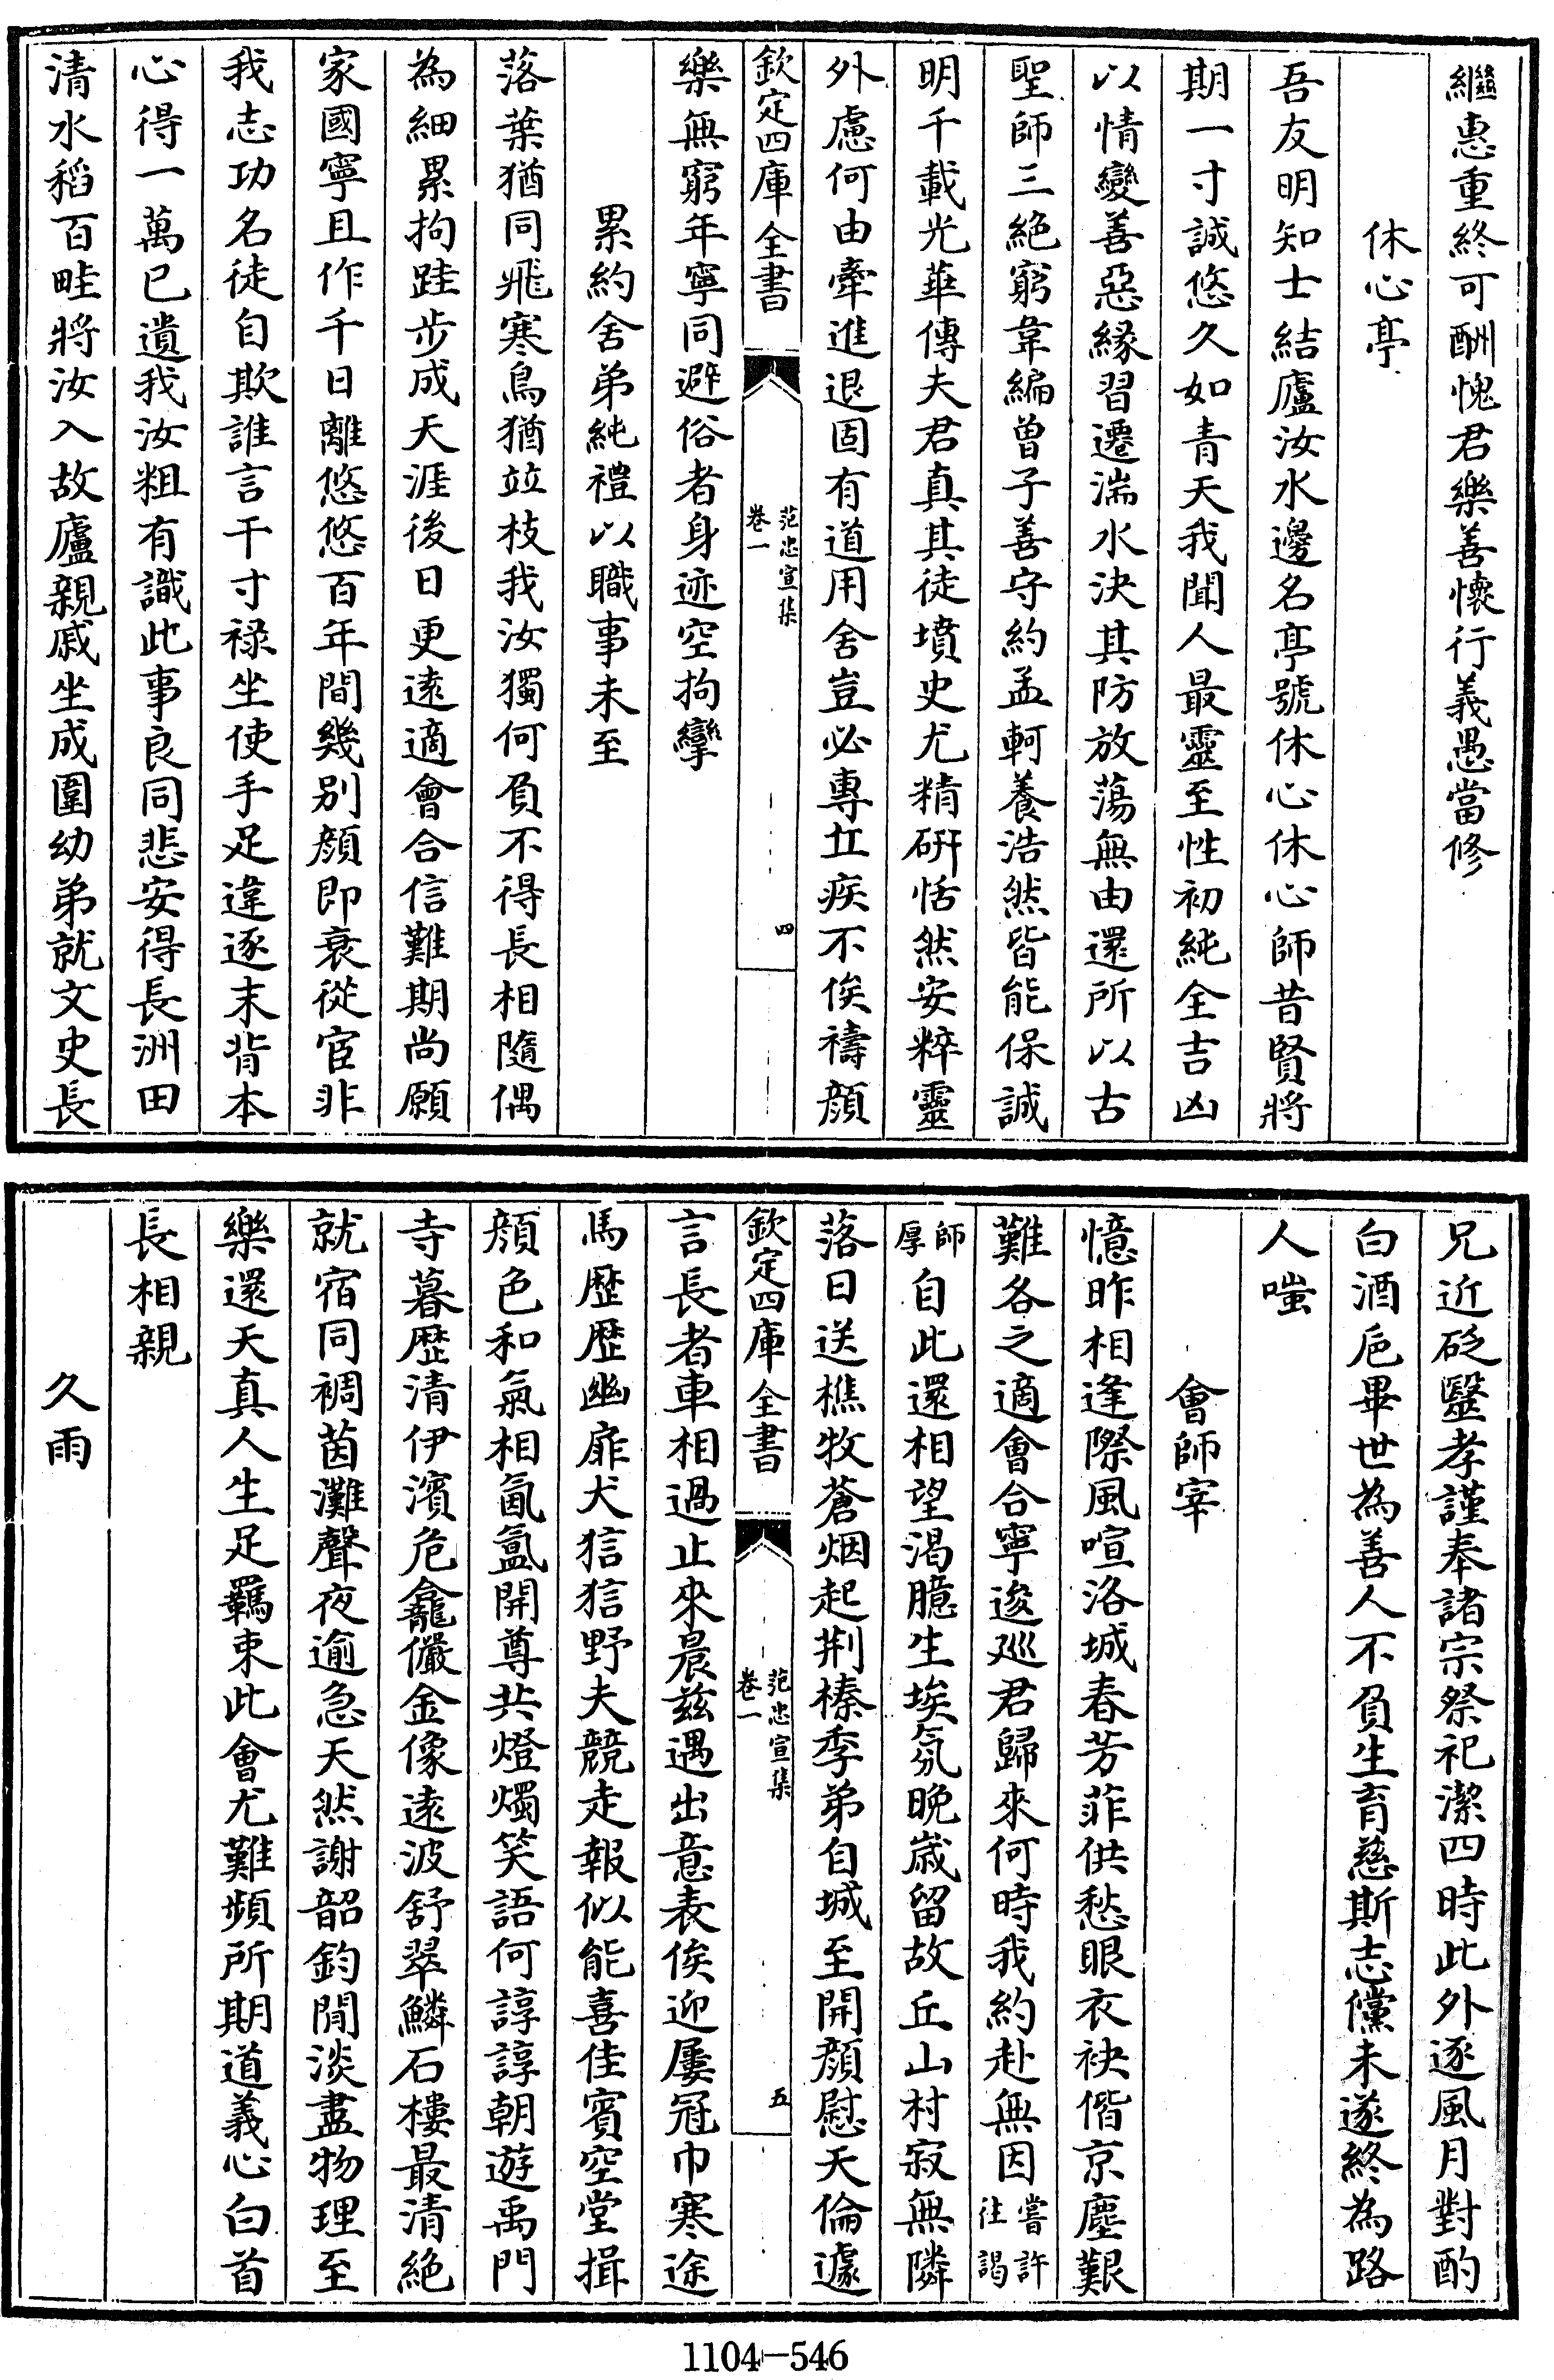 繼惠重終可酬愧君樂善懷行義愚當修
休心亭
吾友明知士結廬汝水邊名亭號休心休心師昔賢將
期一寸誠悠久如青天我聞人最靈至性初純全吉凶
以情變善惡緣習遷湍水決其防放蕩無由還所以古
聖師三絕窮韋編曾子善守約孟軻養浩然皆能保誠
明千載光華傳夫君真其徒墳史尤精研恬然安粹靈
外慮何由牽進退固有道用舍豈必專丘疾不俟禱顔
欽定四庫全書
范忠宣集
卷一
四
樂無窮年寧同避俗者身迹空拘攣
累約舍弟純禮以職事未至
落葉猶同飛寒鳥猶竝枝我汝獨何負不得長相隨偶
為細累拘跬步成天涯後日更逺適會合信難期尚願
家國寧且作千日離悠悠百年間幾别顔即衰從宦非
我志功名徒自欺誰言干寸祿坐使手足違逐末背本
心得一萬已遺我汝粗有識此事良同悲安得長洲田
清水稻百畦將汝入故廬親戚坐成圍幼弟就文史長
兄近砭毉孝謹奉諸宗祭祀潔四時此外逐風月對酌
白酒巵畢世為善人不負生育慈斯志儻未遂終為路
人嗤
會師宰
憶昨相逢際風喧洛城春芳菲供愁眼衣袂偕京塵艱
難各之適會合寧逡巡君歸來何時我約赴無因嘗許往謁
師厚自此還相望渴臆生埃氛晚歳留故丘山村寂無隣
落日送樵牧蒼烟起荆榛季弟自城至開顔慰天倫遽
欽定四庫全書
范忠宣集
卷一
五
言長者車相過止來晨兹遇出意表俟迎屢冠巾寒途
馬歷歷幽扉犬狺狺野夫競走報似能喜佳賓空堂揖
顔色和氣相氤氲開尊共燈燭笑語何諄諄朝遊禹門
寺暮歷清伊濱危龕儼金像逺波舒翠鱗石樓最清絶
就宿同裯茵灘聲夜逾急天然謝韶鈞閒淡盡物理至
樂還天真人生足羈束此會尤難頻所期道義心白首
長相親
久雨
1104-546